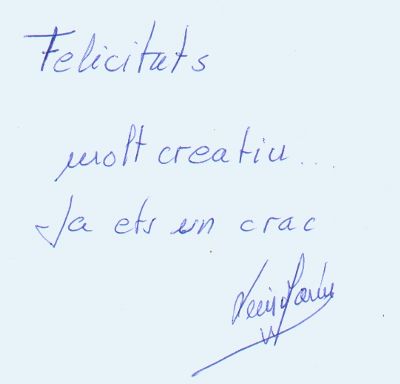 Felicitats
molt creatiu...
Ja ets un crac